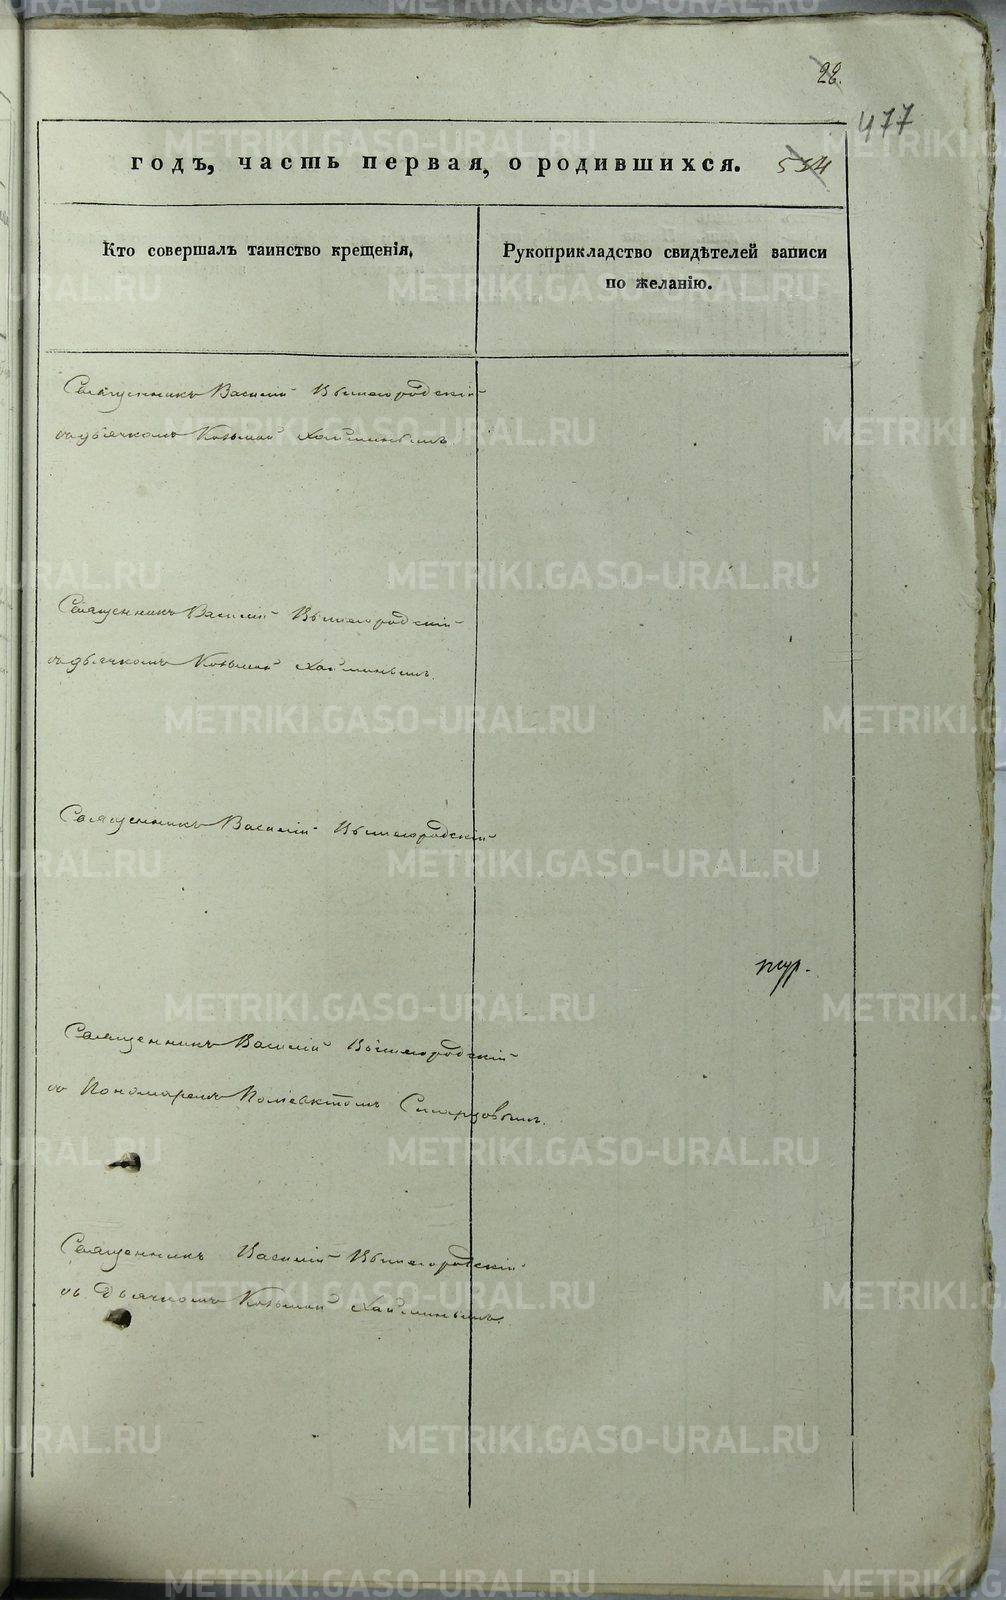 28.
477
годъ, часть первая, о родившихся. 554
Кто совершалъ таинство крещенія,
Рукоприкладство свидѣтелей записи
по желанію.
Священникъ Василій Вышегородскій
съ дьячкомъ Козьмой Хайминымъ
Священникъ Василій Вышегородскій
съ дьячкомъ Козьмой Хайминымъ.
Священникъ Василій Вышегородскій
Священникъ Василій Вышегородскій
съ Пономаремъ Поліевктомъ
Священникъ Василій Вышегородскій
съ Дьячкомъ Козьмой Хайминымъ.
METRIKI.GASO-URAL.RU